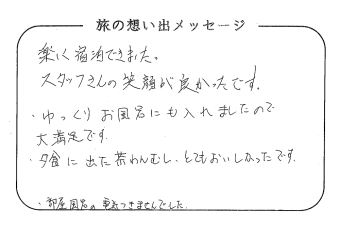 旅の想い出メッセージ
楽しく宿泊できました。
スタッフさんの笑顔が良かったです。
・ゆっくりお風呂にも入れましたので
大満足です。
・夕食に出た茶わんむし、とてもおいしかったです。
・部屋風呂の電気つきませんでした。